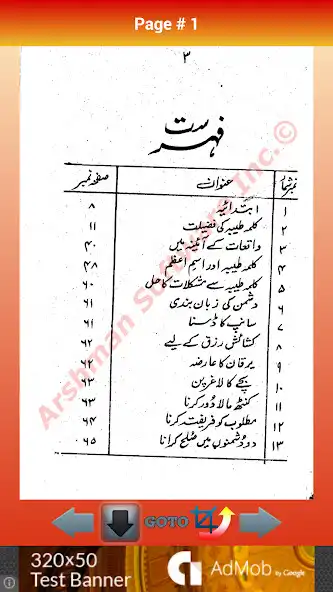 Page # 1
۳
فہرست
نمبر شمار عنوان صفحہ نمبر
۱ ابتدائیہ ۸
۲ کلمہ طیبہ کی فضیلت ۱۱
۳ واقعات کے آئینہ میں ۴۰
۴ کلمہ طیبہ اور اسم اعظم ۴۸
۵ کلمہ طیبہ سے مشکلات کا حل ۶۰
۶ دشمن کی زبان بندی ۶۱
۷ سانپ کا ڈسنا ۶۱
۸ کشائش رزق کے لیے ۶۲
۹ یرقان کا عارضہ ۶۲
۱۰ بچے کا لاغر پن ۶۳
۱۱ کنٹھ مالا دور کرنا ۶۳
۱۲ مطلوب کو فریفتہ کرنا ۶۴
۱۳ دو دشمنوں میں صلح کرانا ۶۵
Arshman Solutions Inc.©
GOTO
320x50
Test Banner
AdMob by Google